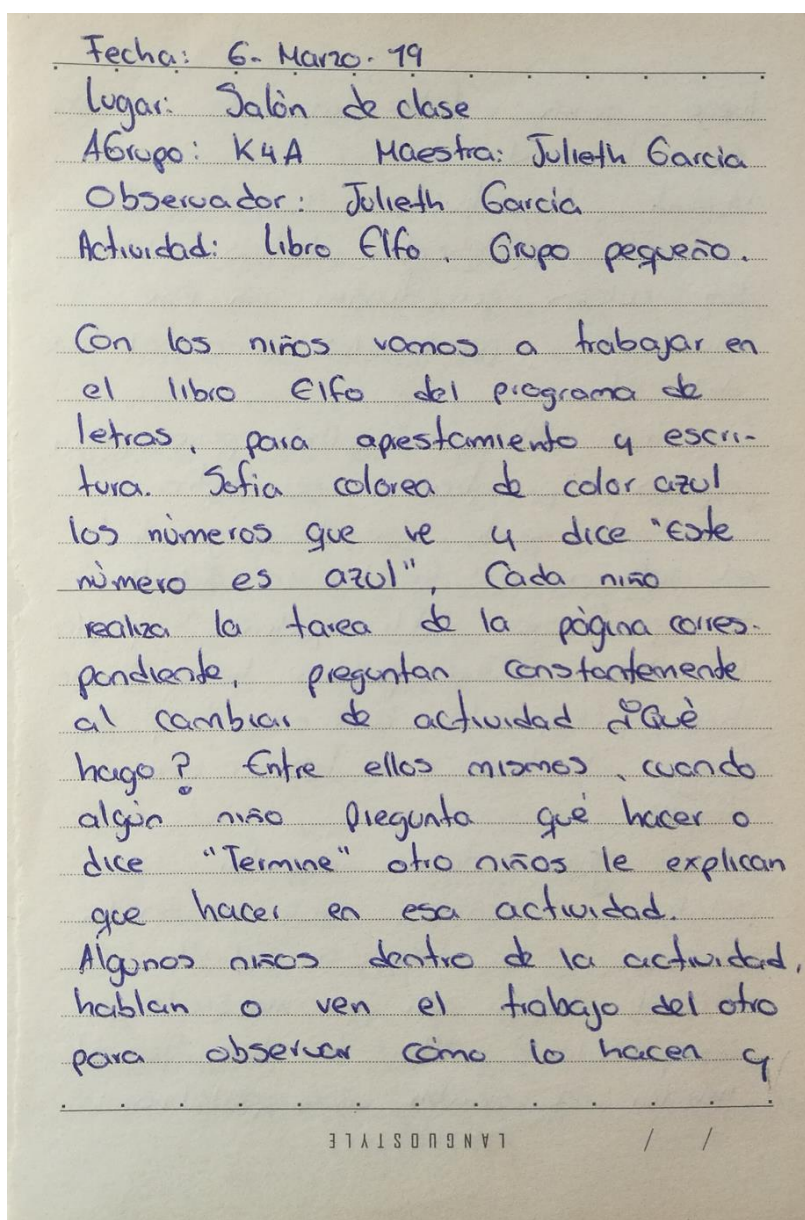 Fecha: 6- Marzo- 19
Lugar: Salòn de clase
AGrupo: K4A Maestra: Julieth Garcia
Observador: Julieth Garcia
Actividad: libro Elfo. Grupo pequeño.
Con los niños vamos a trabajar en
el libro Elfo del programa de
letras, para aprestamiento y escri-
tura. Sofia colorea de color azul
los nùmeros que ve y dice "Este
nùmero es azul", Cada niño
realiza la tarea de la pàgina corres-
pondiente, preguntan constantemente
al cambiar de actividad ¿Què
hago? Entre ellos mismos, cuando
algùn niño pregunta què hacer o
dice "Termine" otro niños le explican
que hacer en esa actividad.
Algunos niños dentro de la actividad,
hablan o ven el trabajo del otro
para observar còmo lo hacen y
LANGUOSTYLE / /